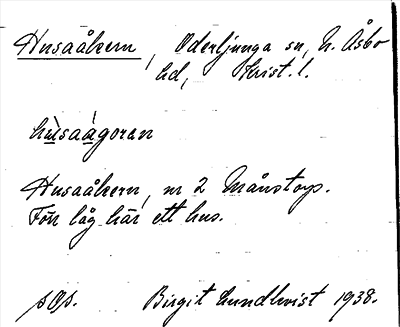 Husaåkern, Oderljunga sn, N. Åsbo
hd, Krist. l.
hùsaágoran
Husaåkern, nr 2 Månstorp.
Förr låg här ett hus.
Birgit Lundkvist 1938.